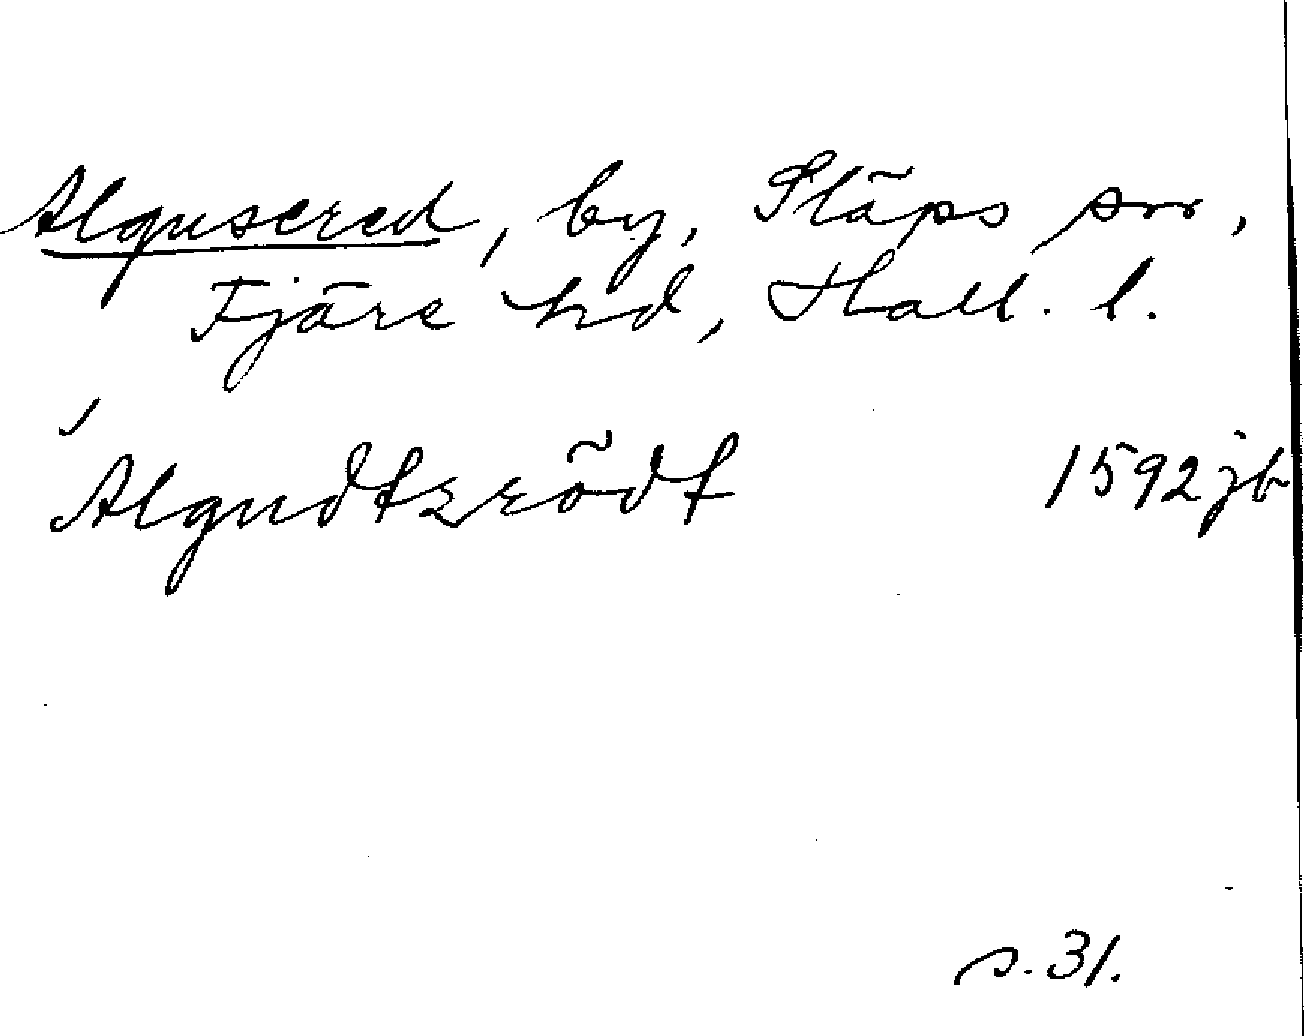 Algusered, by, Släps sn,
Fjäre hd, Hall. l.
Algudtzrödt 1592 jb
s. 31.